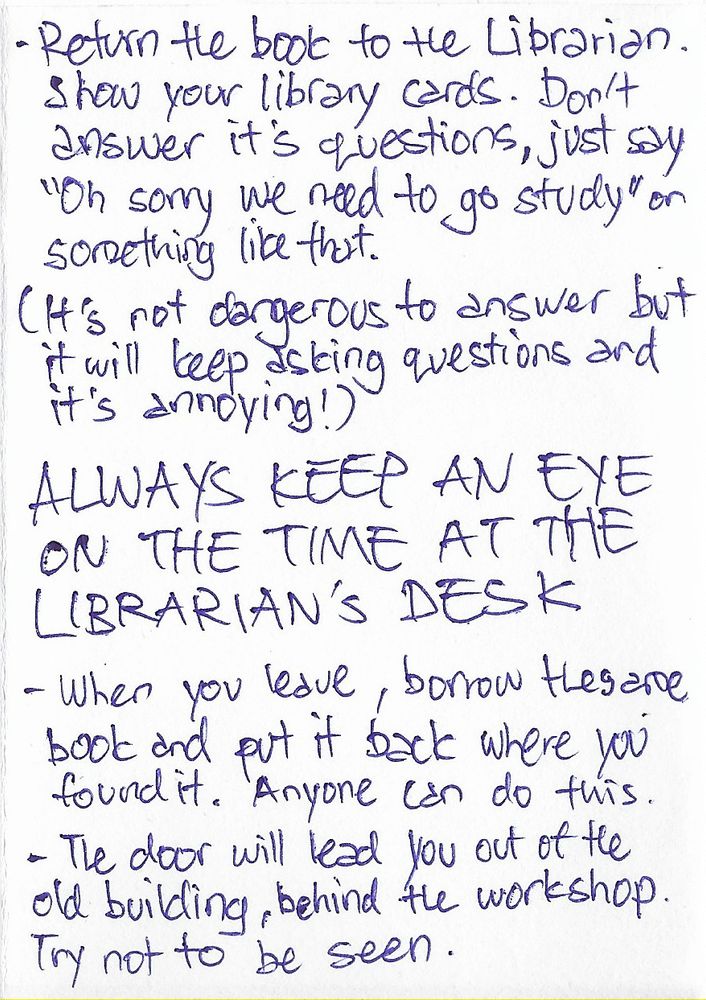 - Return the book to the Librarian.
Show your library cards. Don't
answer it's questions, just say
"Oh sorry we need to go study" or
something like that.
(It's not dangerous to answer but
it will keep asking questions and
it's annoying!)
ALWAYS KEEP AN EYE
ON THE TIME AT THE
LIBRARIAN'S DESK
- When you leave, borrow the same
book and put it back where you
found it. Anyone can do this.
- The door will lead you out of the
old building, behind the workshop.
Try not to be seen.